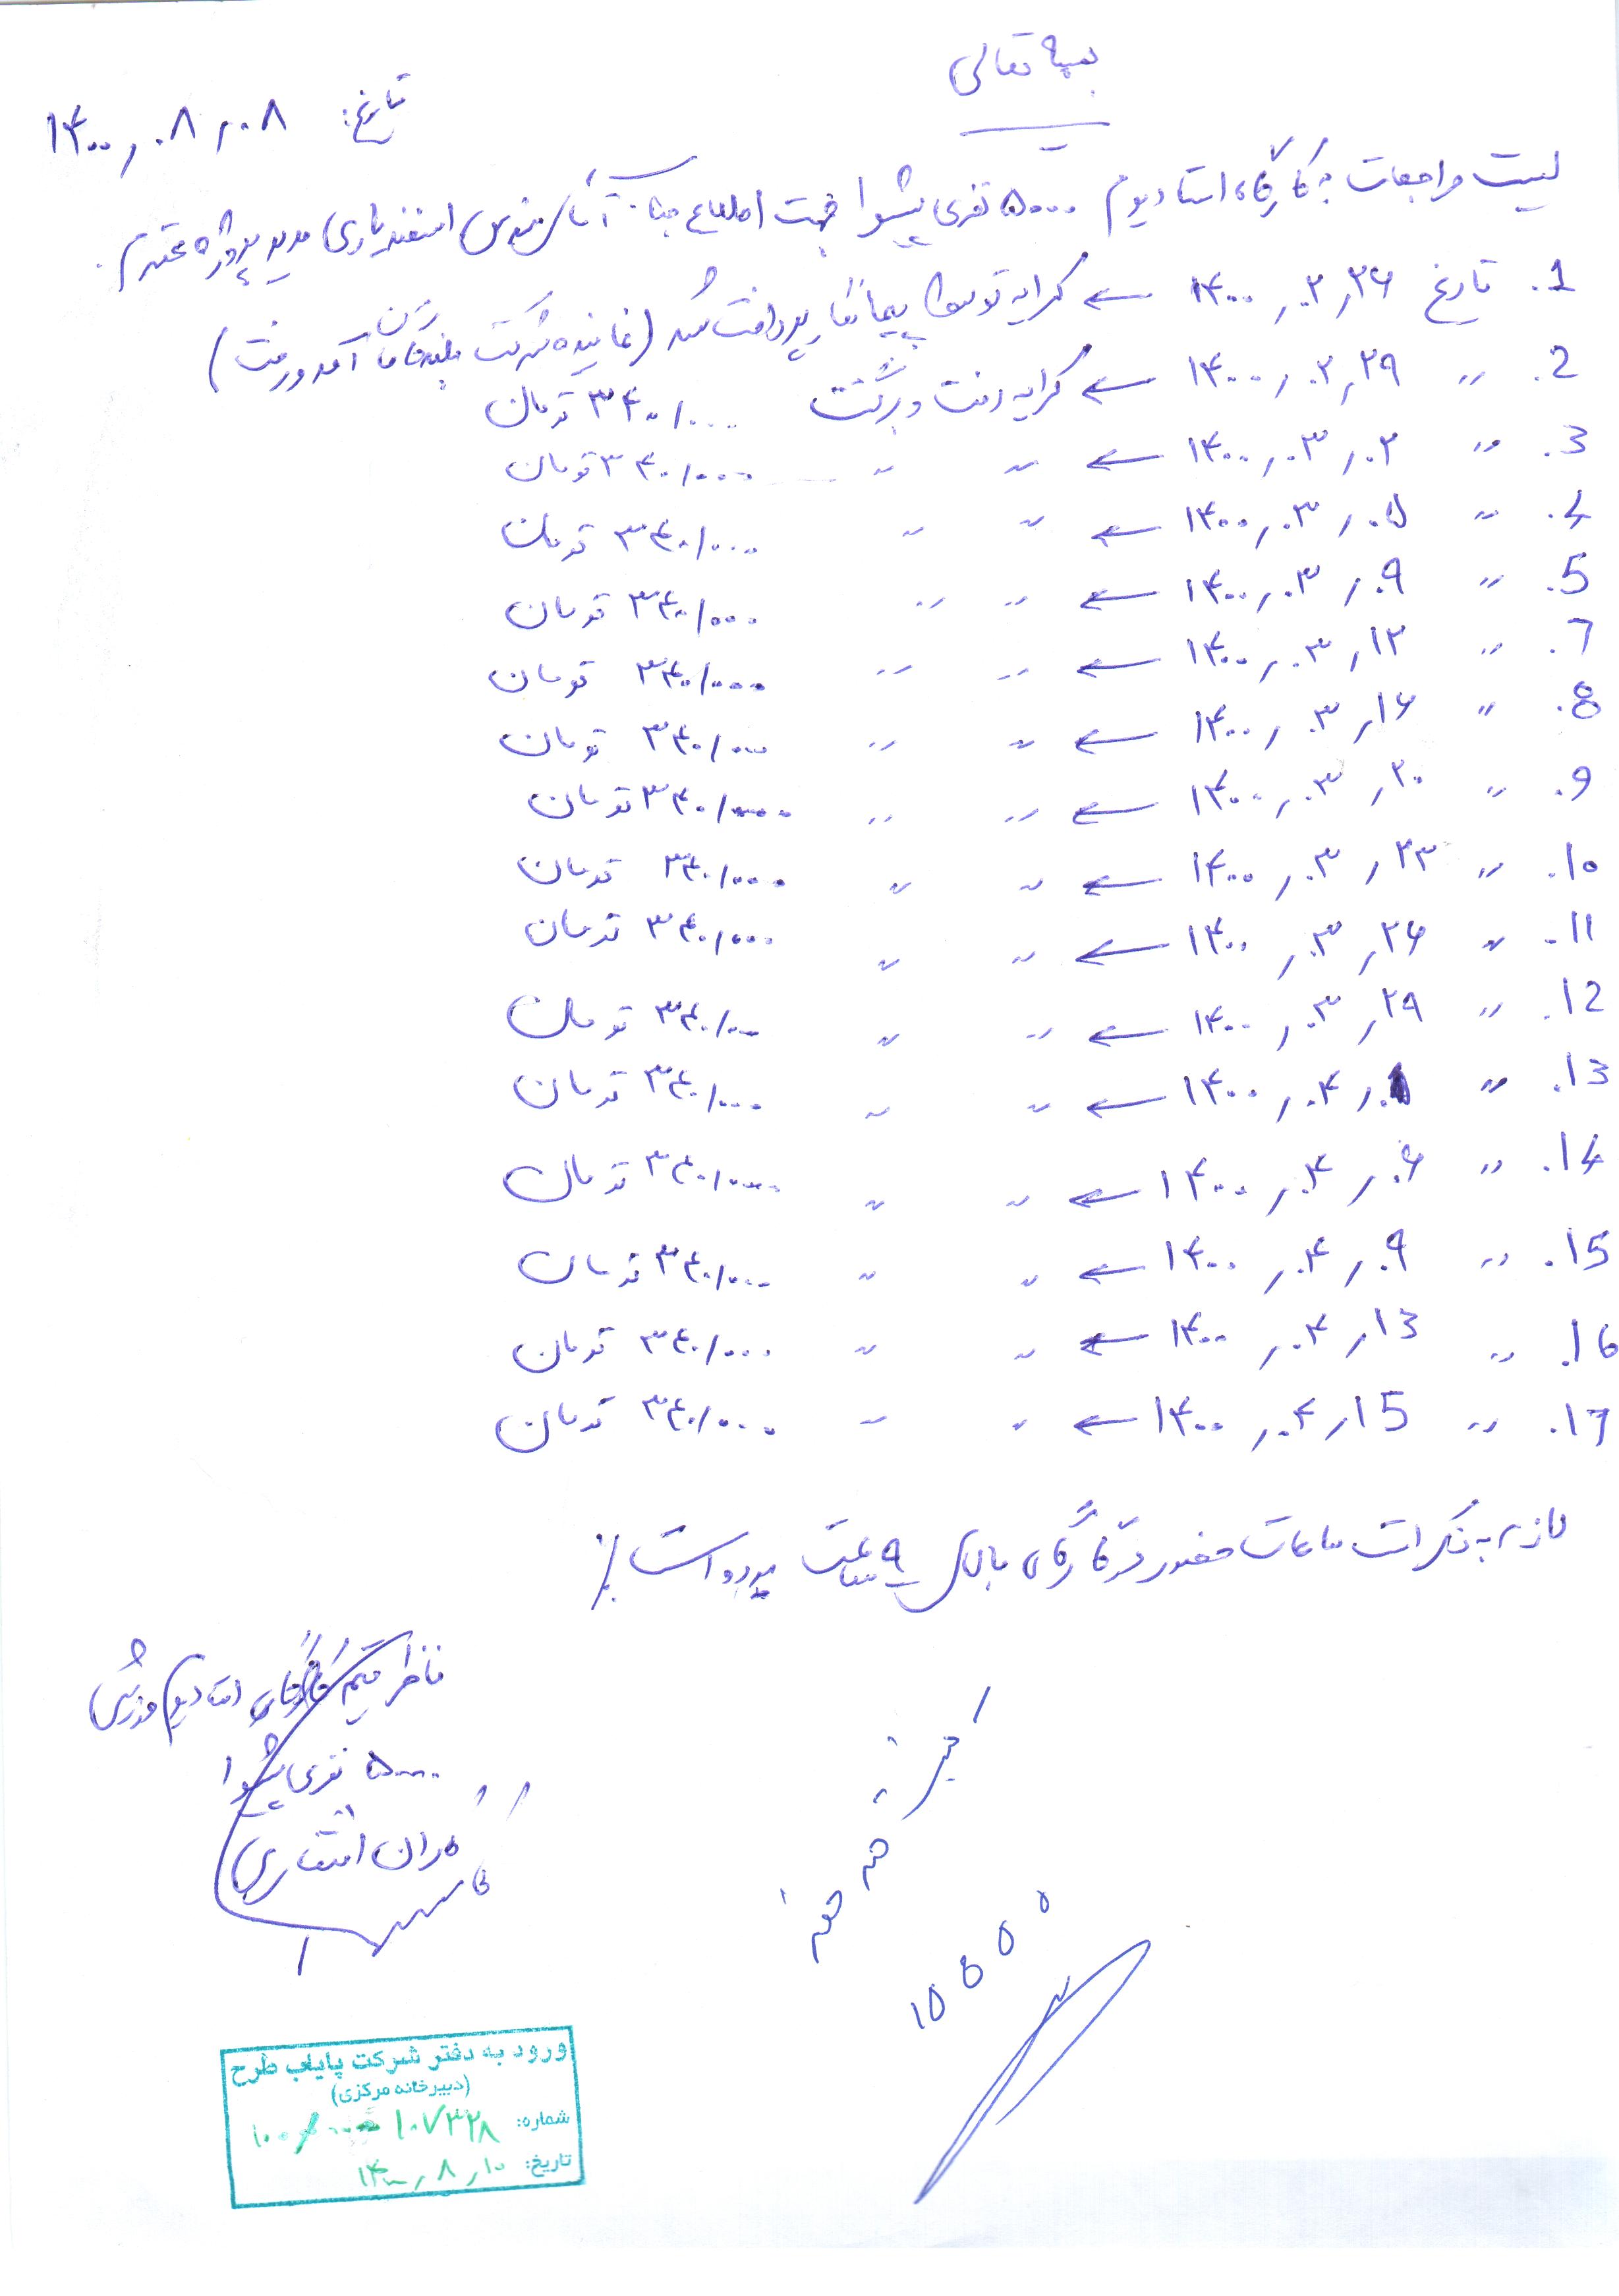 بسمه تعالی
تاریخ: ۱۴۰۰/۰۸/۰۸
لیست مراجعات به کارگاه استادیوم ۵۰۰۰ نفری پیشوا جهت اطلاع جناب آقای مهندس اسفندیاری مدیر پروژه محترم.
1. تاریخ ۱۴۰۰/۰۲/۲۶ ← کرایه توسط پیمانکار پرداخت شد (نماینده شرکت آمد و رفت)
2. 〃 ۱۴۰۰/۰۲/۲۹ ← کرایه رفت و برگشت ۳۴۰/۰۰۰ تومان
3. 〃 ۱۴۰۰/۰۳/۰۲ ← 〃 〃 ۳۴۰/۰۰۰ تومان
4. 〃 ۱۴۰۰/۰۳/۰۵ ← 〃 〃 ۳۴۰/۰۰۰ تومان
5. 〃 ۱۴۰۰/۰۳/۰۹ ← 〃 〃 ۳۴۰/۰۰۰ تومان
7. 〃 ۱۴۰۰/۰۳/۱۲ ← 〃 〃 ۳۴۰/۰۰۰ تومان
8. 〃 ۱۴۰۰/۰۳/۱۶ ← 〃 〃 ۳۴۰/۰۰۰ تومان
9. 〃 ۱۴۰۰/۰۳/۲۰ ← 〃 〃 ۳۴۰/۰۰۰ تومان
10. 〃 ۱۴۰۰/۰۳/۲۳ ← 〃 〃 ۳۴۰/۰۰۰ تومان
11. 〃 ۱۴۰۰/۰۳/۲۶ ← 〃 〃 ۳۴۰/۰۰۰ تومان
12. 〃 ۱۴۰۰/۰۳/۲۹ ← 〃 〃 ۳۴۰/۰۰۰ تومان
13. 〃 ← 〃 〃 ۳۴۰/۰۰۰ تومان
14. 〃 ۱۴۰۰/۰۴/۰۶ ← 〃 〃 ۳۴۰/۰۰۰ تومان
15. 〃 ۱۴۰۰/۰۴/۰۹ ← 〃 〃 ۳۴۰/۰۰۰ تومان
16. 〃 ۱۴۰۰/۰۴/۱3 ← 〃 〃 ۳۴۰/۰۰۰ تومان
17. 〃 ۱۴۰۰/۰۴/۱5 ← 〃 〃 ۳۴۰/۰۰۰ تومان
لازم به ذکر است ساعات حضور در کارگاه بالای ۹ ساعت بوده است٪
ناظر مقیم کارگاه استادیوم ورزشی
۵۰۰۰ نفری پیشوا
کامران افتخاری
ورود به دفتر شرکت پایاب طرح
(دبیرخانه مرکزی)
شماره: ۱۰۷۳۲۸
تاریخ: ۱۴۰۰/۸/۱۰